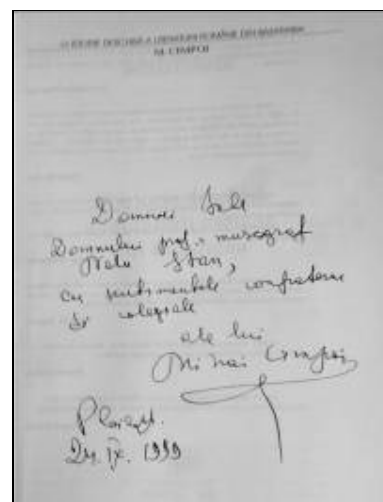 O ISTORIE DESCHISĂ A LITERATURII ROMÂNE DIN BASARABIA
M. CIMPOI
Domniei Sale
Domnului prof. muzeograf
Stan,
cu sentimentele confraterne
și colegiale
ale lui
Mihai Cimpoi
Ploiești.
24. IX. 1999